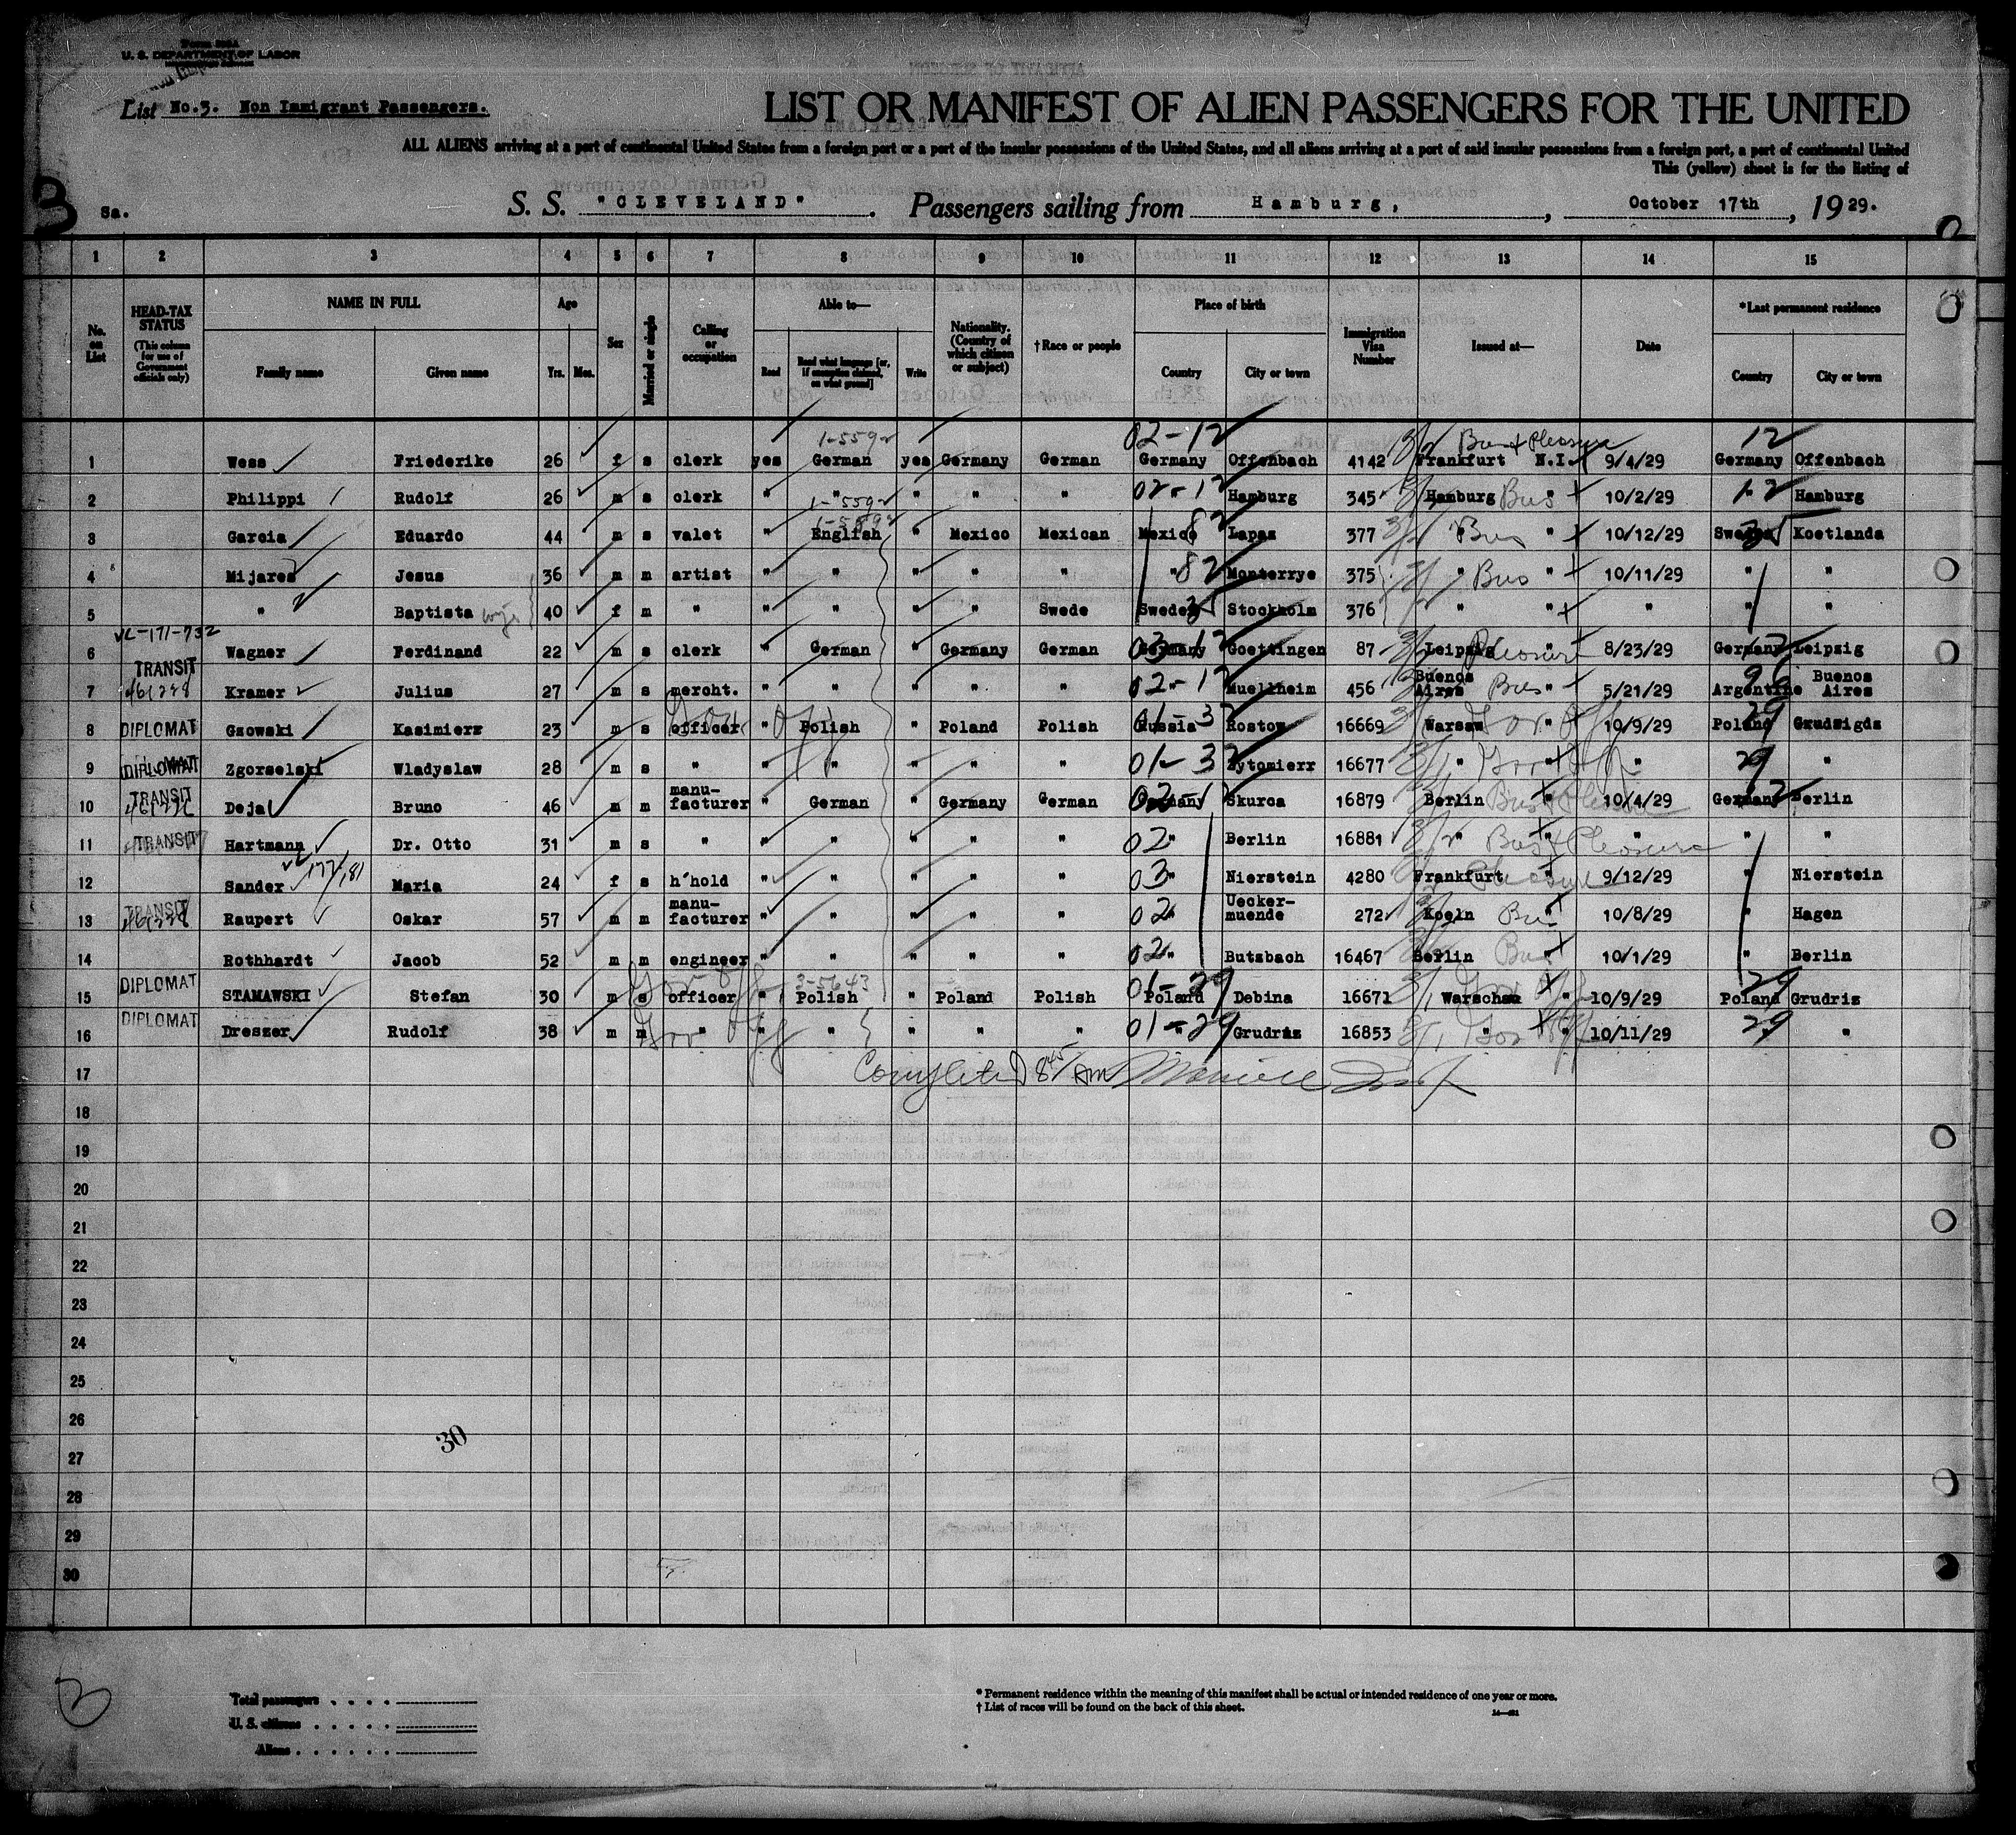 U. S. DEPARTMENT OF LABOR
List No.3. Non Immigrant Passengers.
LIST OR MANIFEST OF ALIEN PASSENGERS FOR THE UNITED
ALL ALIENS arriving at a port of continental United States from a foreign port or a port of the insular possessions of the United States, and all aliens arriving at a port of said insular possessions from a foreign port, a port of continental United
This (yellow) sheet is for the listing of
3 Sa. S. S. "CLEVELAND" . Passengers sailing from Hamburg, , October 17th , 19 29.
1 2 3 4 5 6 7 8 9 10 11 12 13 14 15
No. on List
HEAD-TAX STATUS (This column for use of Government officials only)
NAME IN FULL Family name Given name
Age Yrs. Mos.
Sex
Married or single
Calling or occupation
Able to— Read Read what language [or, if exemption claimed, on what ground] Write
Nationality. (Country of which citizen or subject)
† Race or people
Place of birth Country City or town
Immigration Visa Number
Issued at—
Date
* Last permanent residence Country City or town
1-559 02-12 Bus + Pleasure 12
1 Wess Friederike 26 f s clerk yes German yes Germany German Germany Offenbach 4142 Frankfurt N.I. 9/4/29 Germany Offenbach
2 Philippi Rudolf 26 m s clerk " " " " " 02-12 Hamburg 345 Hamburg Bus " 10/2/29 12 Hamburg
1-559
3 Garcia Eduardo 44 m s valet " English " Mexico Mexican Mexico 82 Lapaz 377 " Bus " 10/12/29 Sweden 35 Koetlanda
4 Mijares Jesus 36 m m artist " " " " " " 82 Monterrye 375 " Bus " 10/11/29 " "
5 " Baptista wife 40 f m " " " " " Swede Sweden 35 Stockholm 376 " " " " "
VL-171-732
6 Wagner Ferdinand 22 m s clerk " German " Germany German Germany 03-12 Goettingen 87 Leipzig Pleasure " 8/23/29 Germany 12 Leipzig
TRANSIT
7 Kramer Julius 27 m s mercht. " " " " " 02-12 Muellheim 456 Buenos Aires Bus " 5/21/29 Argentine 96 Buenos Aires
8 DIPLOMAT Gzowski Kasimierz 23 m s officer Gov Off " Polish " Poland Polish Russia 01-3 Rostow 16669 Warsaw Gov Off " 10/9/29 Poland 29 Grudzigds
9 DIPLOMAT Zgorzelski Wladyslaw 28 m s " " " " " " 01-3 Zytomierz 16677 " Gov Off " " 29 "
10 TRANSIT Deja Bruno 46 m m manu-facturer " German " Germany German Germany 02-12 Skurca 16879 Berlin Bus + Pleasure " 10/4/29 Germany 12 Berlin
11 TRANSIT Hartmann Dr. Otto 31 m s " " " " " " 02 " Berlin 16881 " Bus + Pleasure " " "
177/181
12 Sander Maria 24 f s h'hold " " " " " 03 " Nierstein 4280 Frankfurt Pleasure " 9/12/29 " Nierstein
13 TRANSIT Raupert Oskar 57 m m manu-facturer " " " " " 02 " Uecker-muende 272 Koeln Bus " 10/8/29 " Hagen
14 Rothhardt Jacob 52 m m engineer " " " " " 02 " Butzbach 16467 Berlin Bus " 10/1/29 " Berlin
3-5643
15 DIPLOMAT STAMAWSKI Stefan 30 m s officer Gov Off " Polish " Poland Polish Poland 01-29 Debina 16671 Warschau Gov Off " 10/9/29 Poland 29 Grudriz
16 DIPLOMAT Dreszer Rudolf 38 m m " Gov Off " " " " " 01-29 " Grudrzs 16853 " Gov Off " 10/11/29 29 "
17 Completed 8 45/ Am
18
19
20
21
22
23
24
25
26
30
27
28
29
30
3
Total passengers
U. S. citizens
Aliens
* Permanent residence within the meaning of this manifest shall be actual or intended residence of one year or more.
† List of races will be found on the back of this sheet.